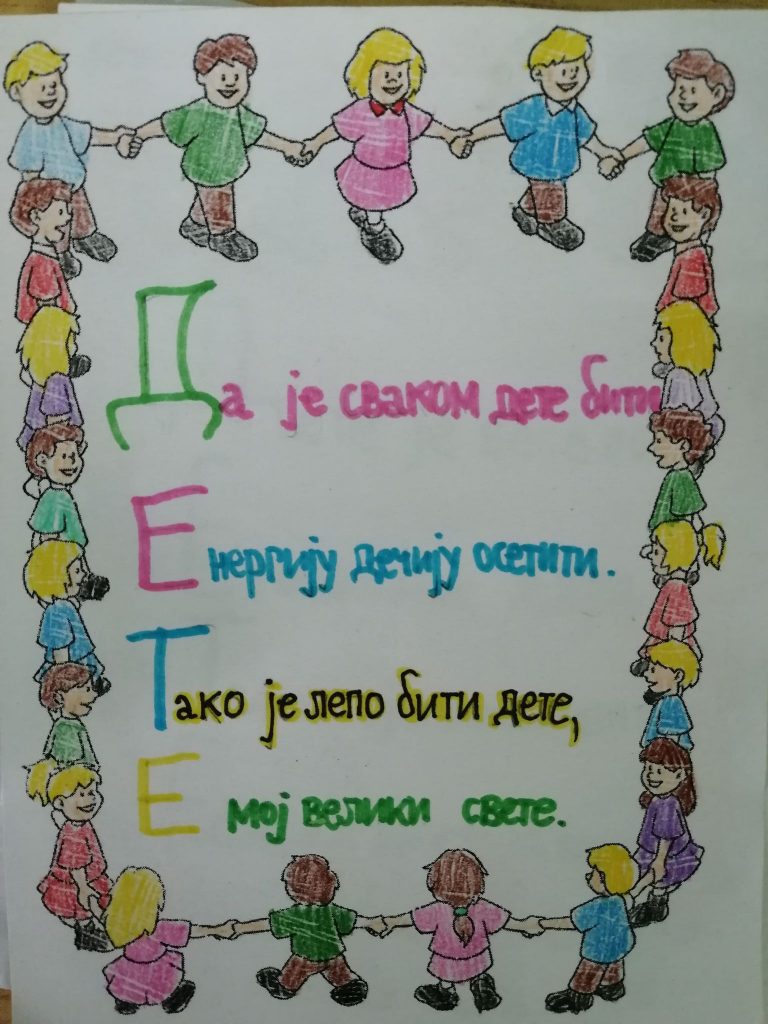 Да је сваком дете бити
Енергију дечију осетити.
Тако је лепо бити дете,
Е мој велики свете.